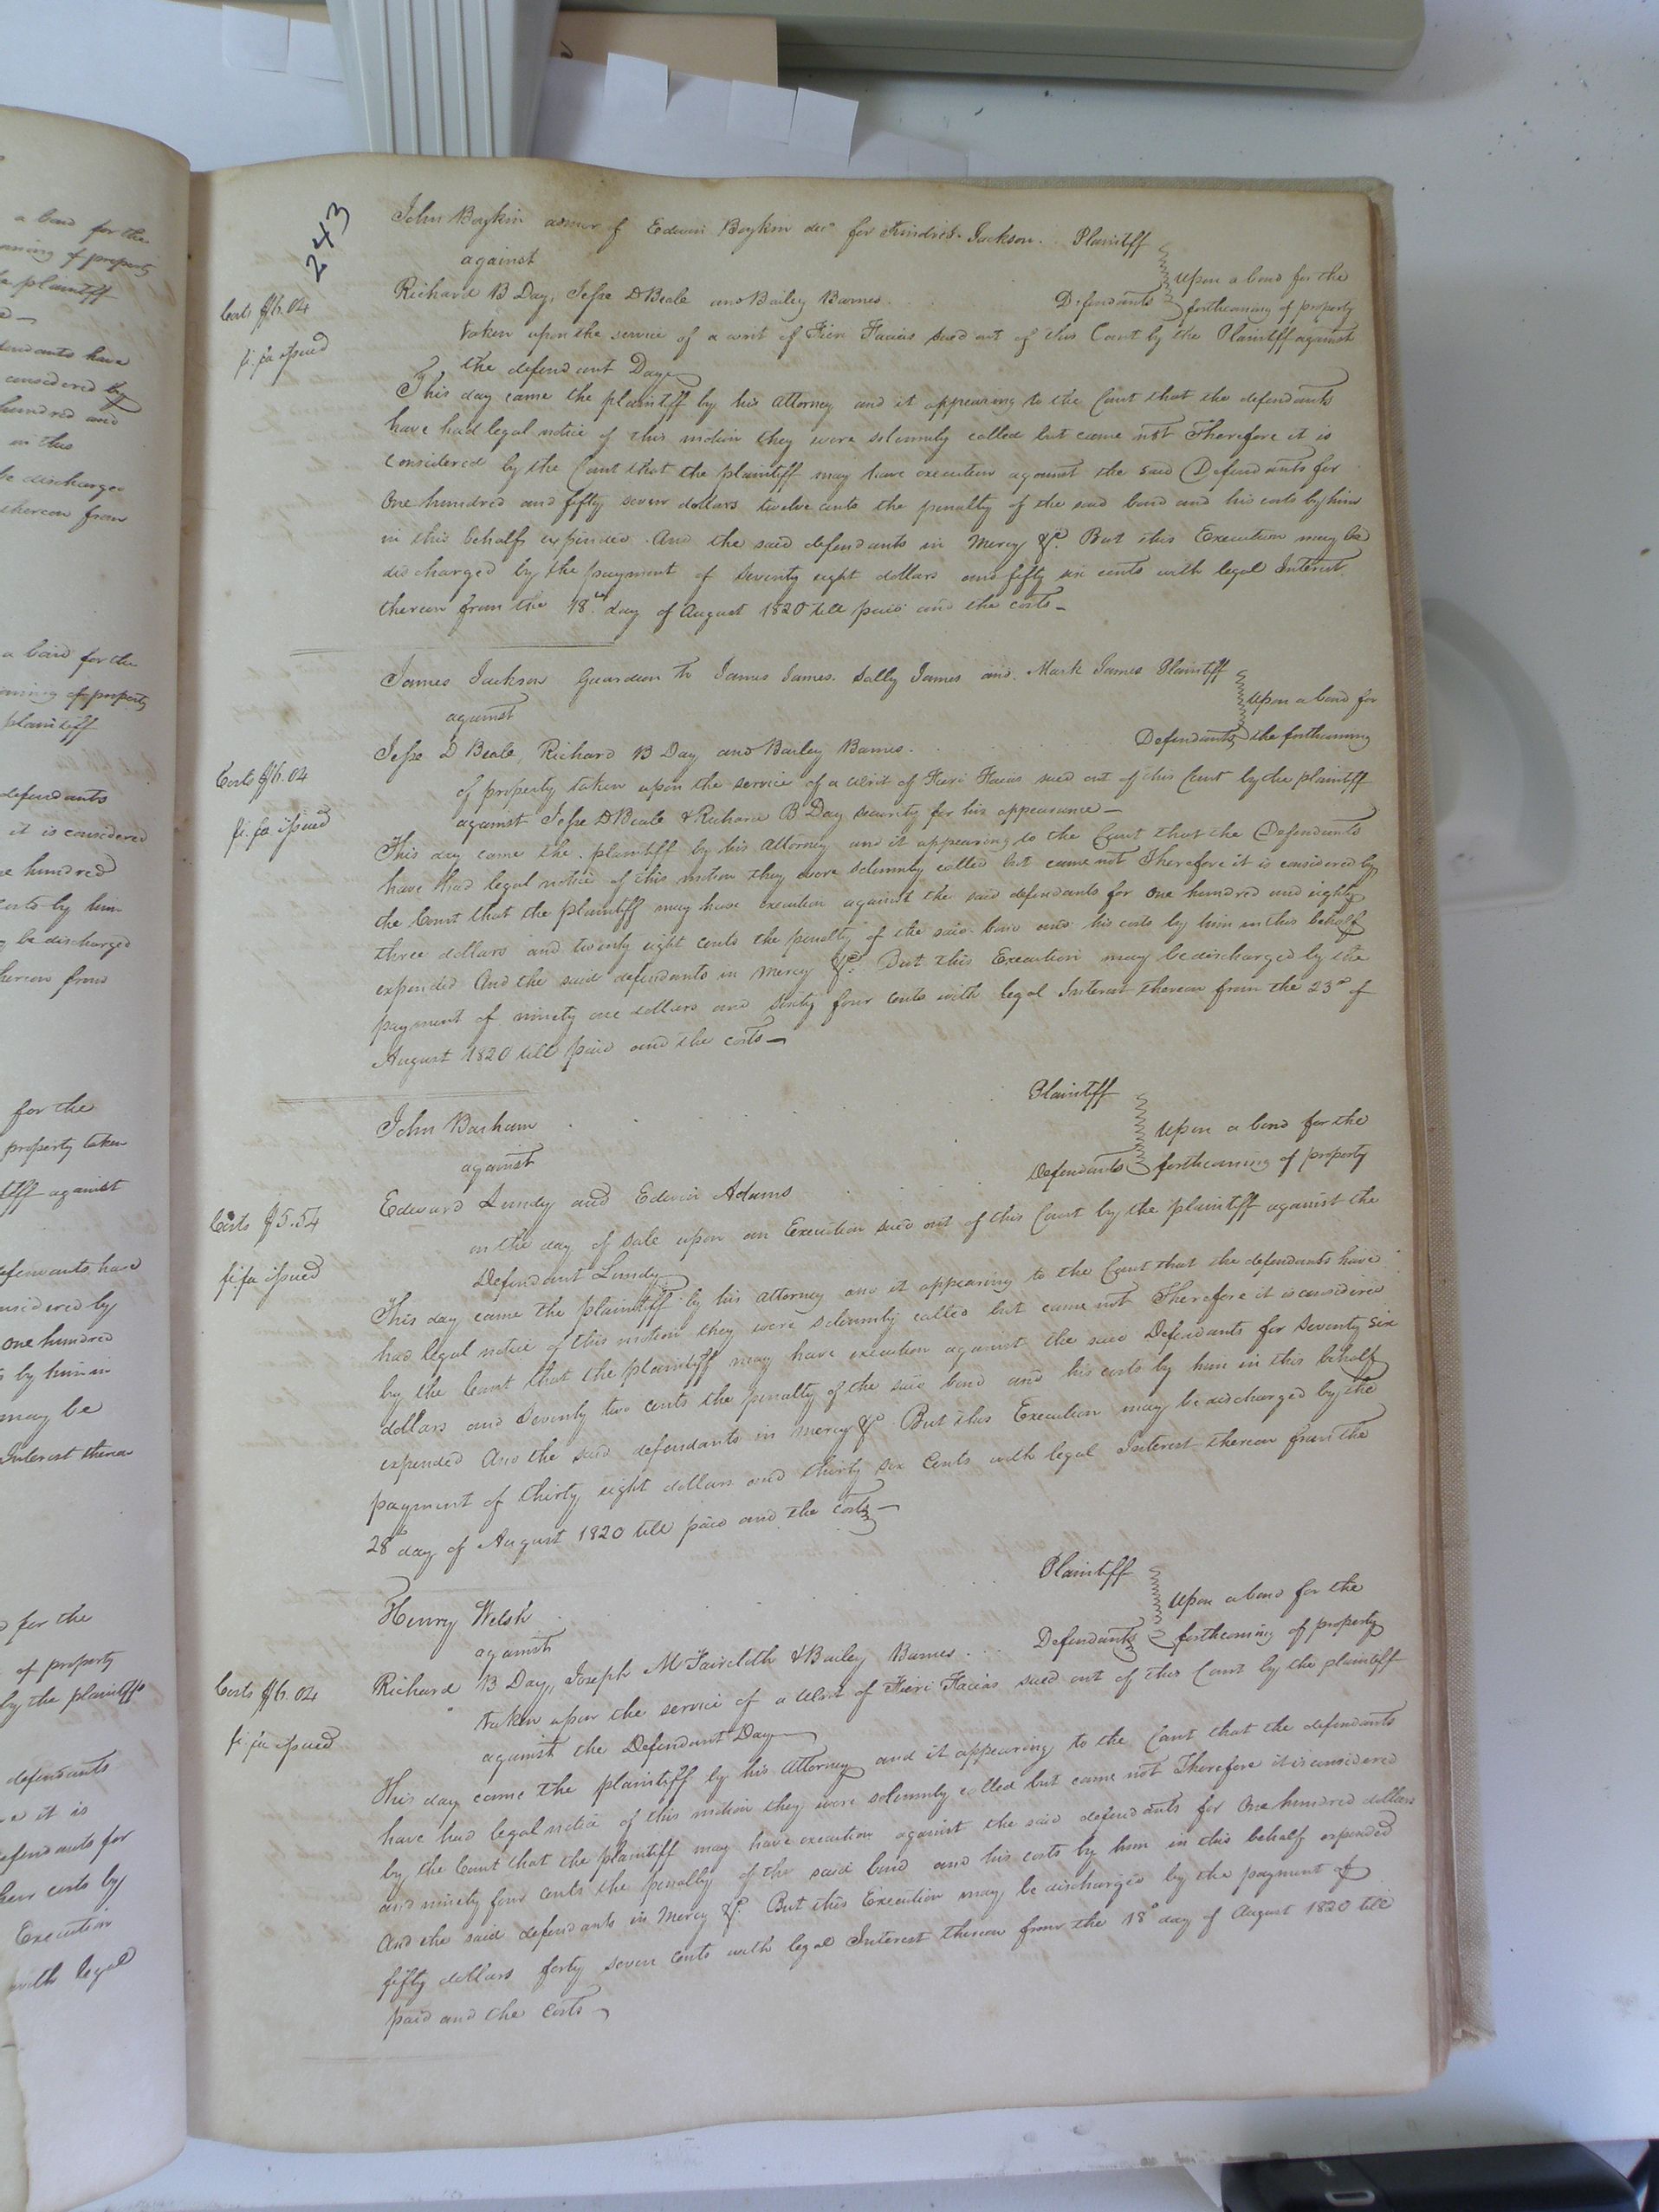 a bond for the
of property
plaintiff
defendants have
considered by
hundred and
in this
be discharged
thereon from
a bond for the
of property
plaintiff
defendants
it is considered
hundred
costs by him
be discharged
thereon from
for the
property taken
against
defendants have
considered by
one hundred
by him in
may be
Interest thereon
for the
of property
by the plaintiffs
defendants
it is
defendants for
costs by
Execution
with legal
243
John Boykin admor of Edwin Boykin decd for Kindred Jackson. Plaintiff
against
upon a bond for the
Richard B Day, Jesse D Beale and Bailey Barnes. Defendants forthcoming of property
Costs $6.04
fi. fa issued
taken upon the service of a writ of Fieri Facias sued out of this Court by the Plaintiff against
the defendant Day
This day came the plaintiff by his Attorney and it appearing to the Court that the defendants
have had legal notice of this motion they were solemnly called but came not Therefore it is
considered by the Court that the plaintiff may have execution against the said Defendants for
One hundred and fifty seven dollars twelve cents the penalty of the said bond and his costs by him
in this behalf expended. And the said defendants in Mercy &c. But this Execution may be
discharged by the payment of Seventy eight dollars and fifty six cents with legal Interest
thereon from the 18th day of August 1820 till paid and the costs—
James Jackson Guardian to James James. Sally James and. Mark James Plaintiff
against
upon a bond for
Jesse D Beale, Richard B Day and Bailey Barnes. Defendants the forthcoming
Costs $6.04
fi. fa issued
of property taken upon the service of a Writ of Fieri Facias sued out of this Court by the plaintiff
against Jesse D Beale & Richard B Day security for his appearance—
This day came the plaintiff by his Attorney and it appearing to the Court that the Defendants
have had legal notice of this motion they were solemnly called but came not Therefore it is considered by
the Court that the plaintiff may have execution against the said defendants for One hundred and eighty
three dollars and twenty eight cents the penalty of the said bond and his costs by him in this behalf
expended And the said defendants in Mercy &c. But this Execution may be discharged by the
payment of ninety one dollars and sixty four cents with legal Interest thereon from the 23d of
August 1820 till paid and the costs—
John Barham Plaintiff
against
upon a bond for the
Edward Lundy and Edwin Adams Defendants forthcoming of property
Costs $5.54
fi. fa issued
on the day of sale upon an Execution sued out of this Court by the plaintiff against the
Defendant Lundy
This day came the plaintiff by his attorney and it appearing to the Court that the defendants have
had legal notice of this motion they were solemnly called but came not Therefore it is considered
by the Court that the plaintiff may have execution against the said Defendants for Seventy six
dollars and Seventy two cents the penalty of the said bond and his costs by him in this behalf
expended And the said defendants in mercy &c But this Execution may be discharged by the
payment of thirty eight dollars and thirty six Cents with legal Interest thereon from the
28th day of August 1820 till paid and the costs—
Henry Welsh Plaintiff
against
upon a bond for the
Richard B Day, Joseph M Faircloth & Bailey Barnes. Defendants forthcoming of property
Costs $6.04
fi. fa issued
taken upon the service of a Writ of Fieri Facias sued out of this Court by the plaintiff
against the Defendant Day
This day came the plaintiff by his Attorney and it appearing to the Court that the defendants
have had legal notice of this motion they were solemnly called but came not Therefore it is considered
by the Court that the plaintiff may have execution against the said defendants for One hundred dollars
and ninety four cents the penalty of the said bond and his costs by him in this behalf expended
And the said defendants in Mercy &c. But this Execution may be discharged by the payment of
fifty dollars forty seven cents with legal Interest thereon from the 18th day of August 1820 till
paid and the costs—